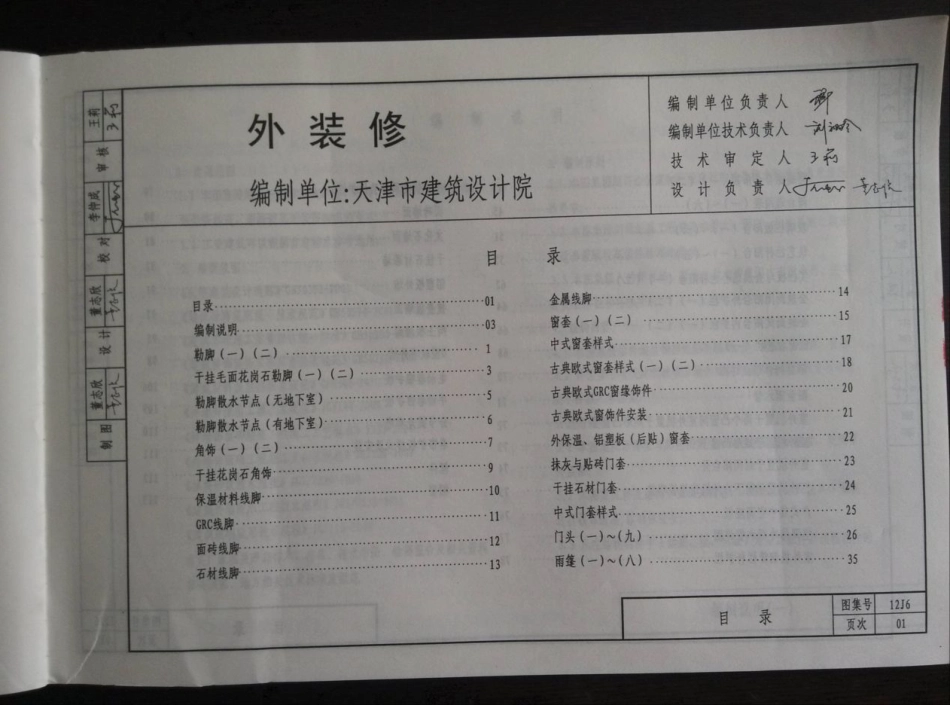 外装修
编制单位:天津市建筑设计院
编制单位负责人
编制单位技术负责人
技术审定人
设计负责人
王莉
审核
李仲成
校对
董志欣
设计
董志欣
制图
目 录
目录 01
编制说明 03
勒脚(一)(二) 1
干挂毛面花岗石勒脚(一)(二) 3
勒脚散水节点(无地下室) 5
勒脚散水节点(有地下室) 6
角饰(一)(二) 7
干挂花岗石角饰 9
保温材料线脚 10
GRC线脚 11
面砖线脚 12
石材线脚 13
金属线脚 14
窗套(一)(二) 15
中式窗套样式 17
古典欧式窗套样式(一)(二) 18
古典欧式GRC窗缘饰件 20
古典欧式窗饰件安装 21
外保温、铝塑板(后贴)窗套 22
抹灰与贴砖门套 23
干挂石材门套 24
中式门套样式 25
门头(一)~(九) 26
雨篷(一)~(八) 35
目 录
图集号 12J6
页次 01